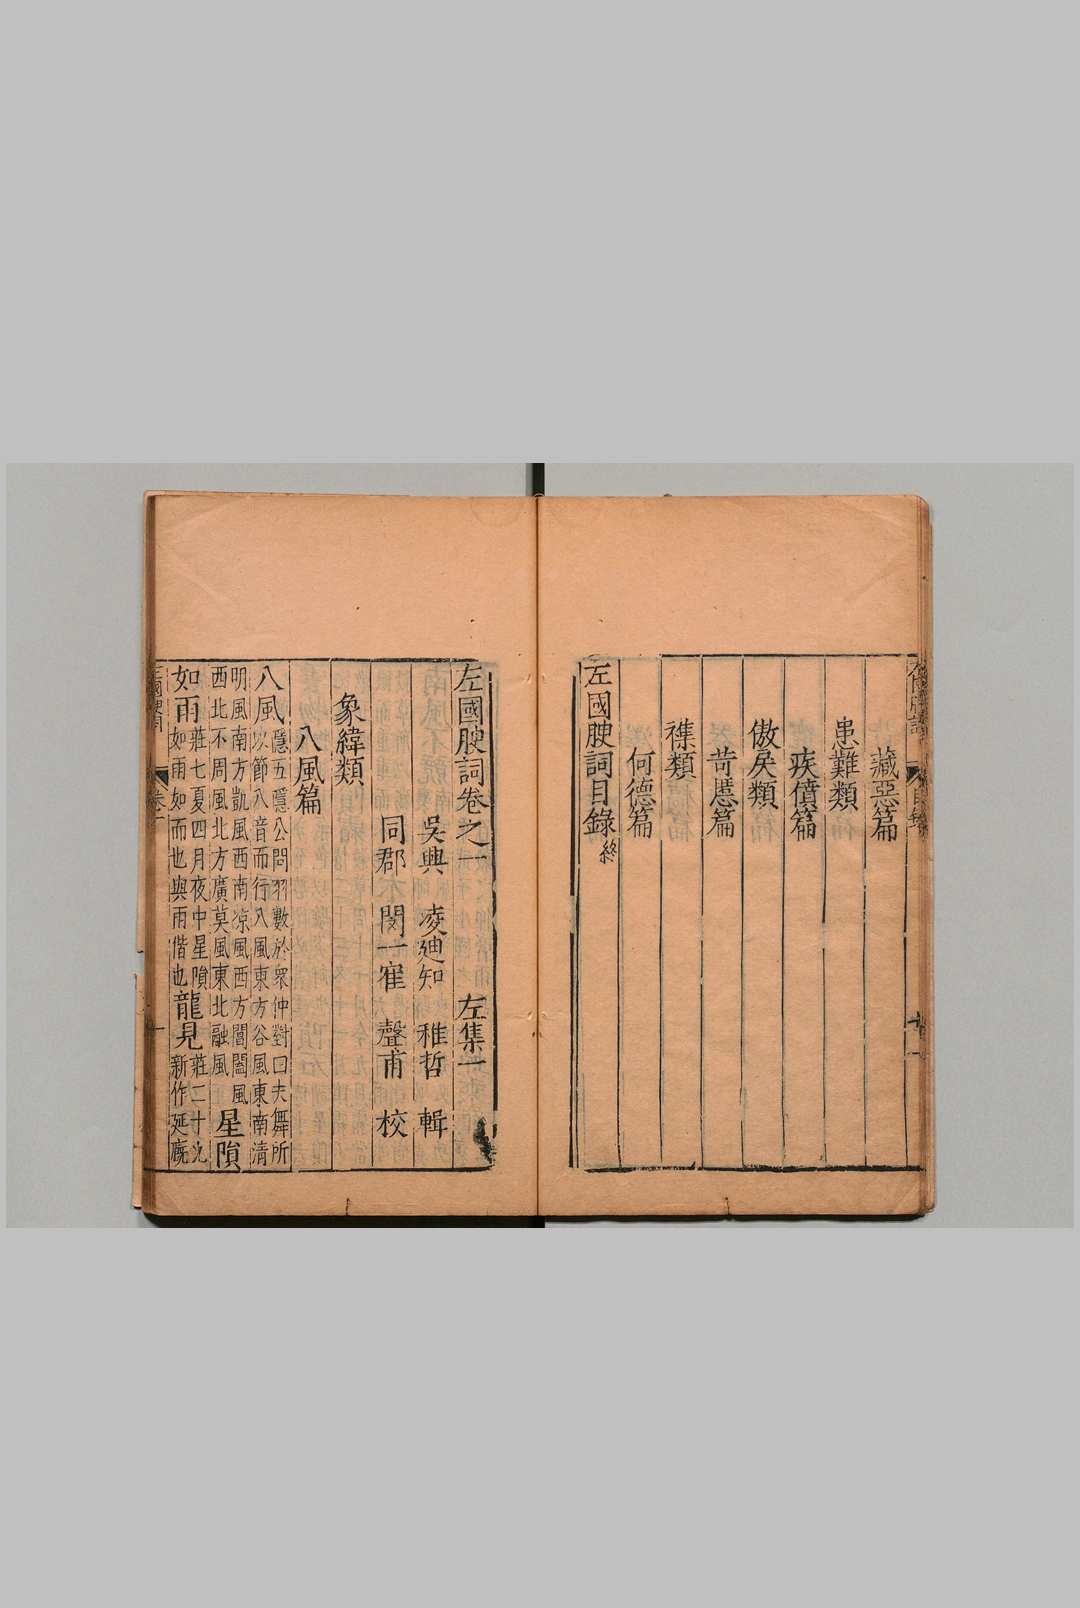 藏惡篇
患難類
疾僨篇
傲戾類
苛慝篇
襍類
何德篇
左國腴詞目錄終
左國腴詞卷之一 左集一
吳興 凌迪知 稚哲 輯
同郡 閔一寉 聲甫 校
象緯類
八風篇
八風隱五隱公問羽數於衆仲對曰夫舞所
以節八音而行八風東方谷風東南清
明風南方凱風西南凉風西方閶闔風
西北不周風北方廣莫風東北融風星隕
如雨莊七夏四月夜中星隕
如雨如而也與雨偕也龍見莊二十九
新作延廐
卷一
一